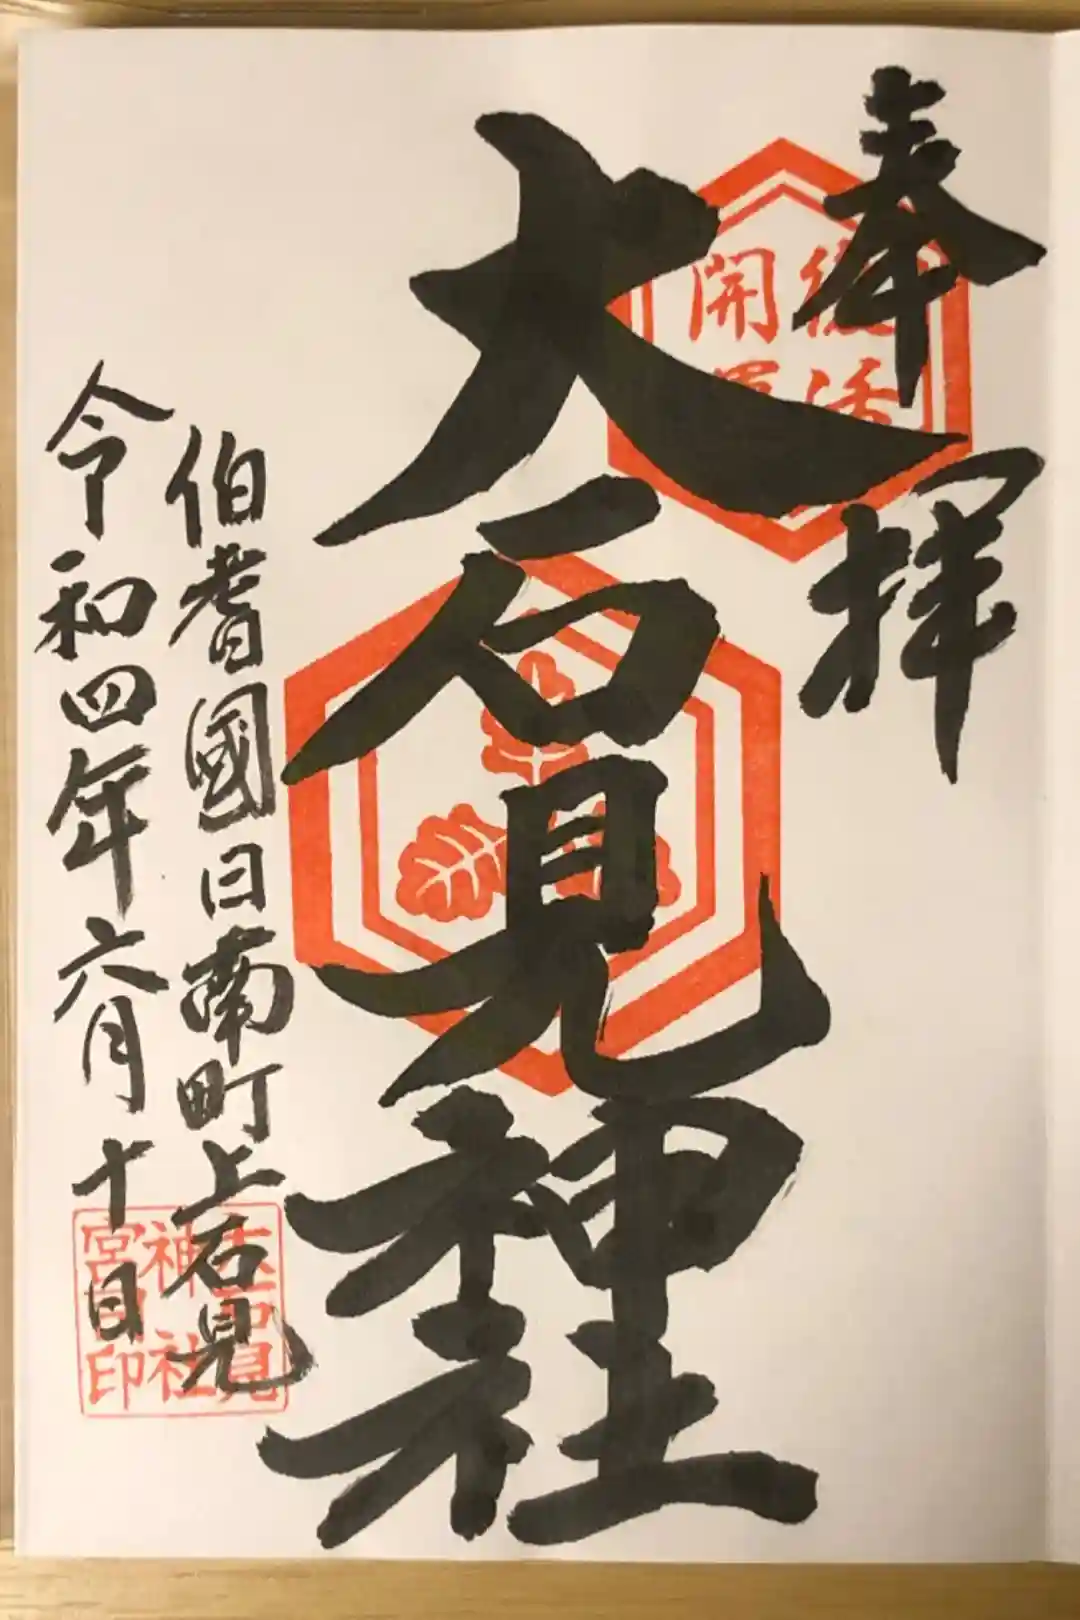 奉拝
復活
開運
大石見神社
伯耆國日南町上石見
令和四年六月十日
神社
宮司印